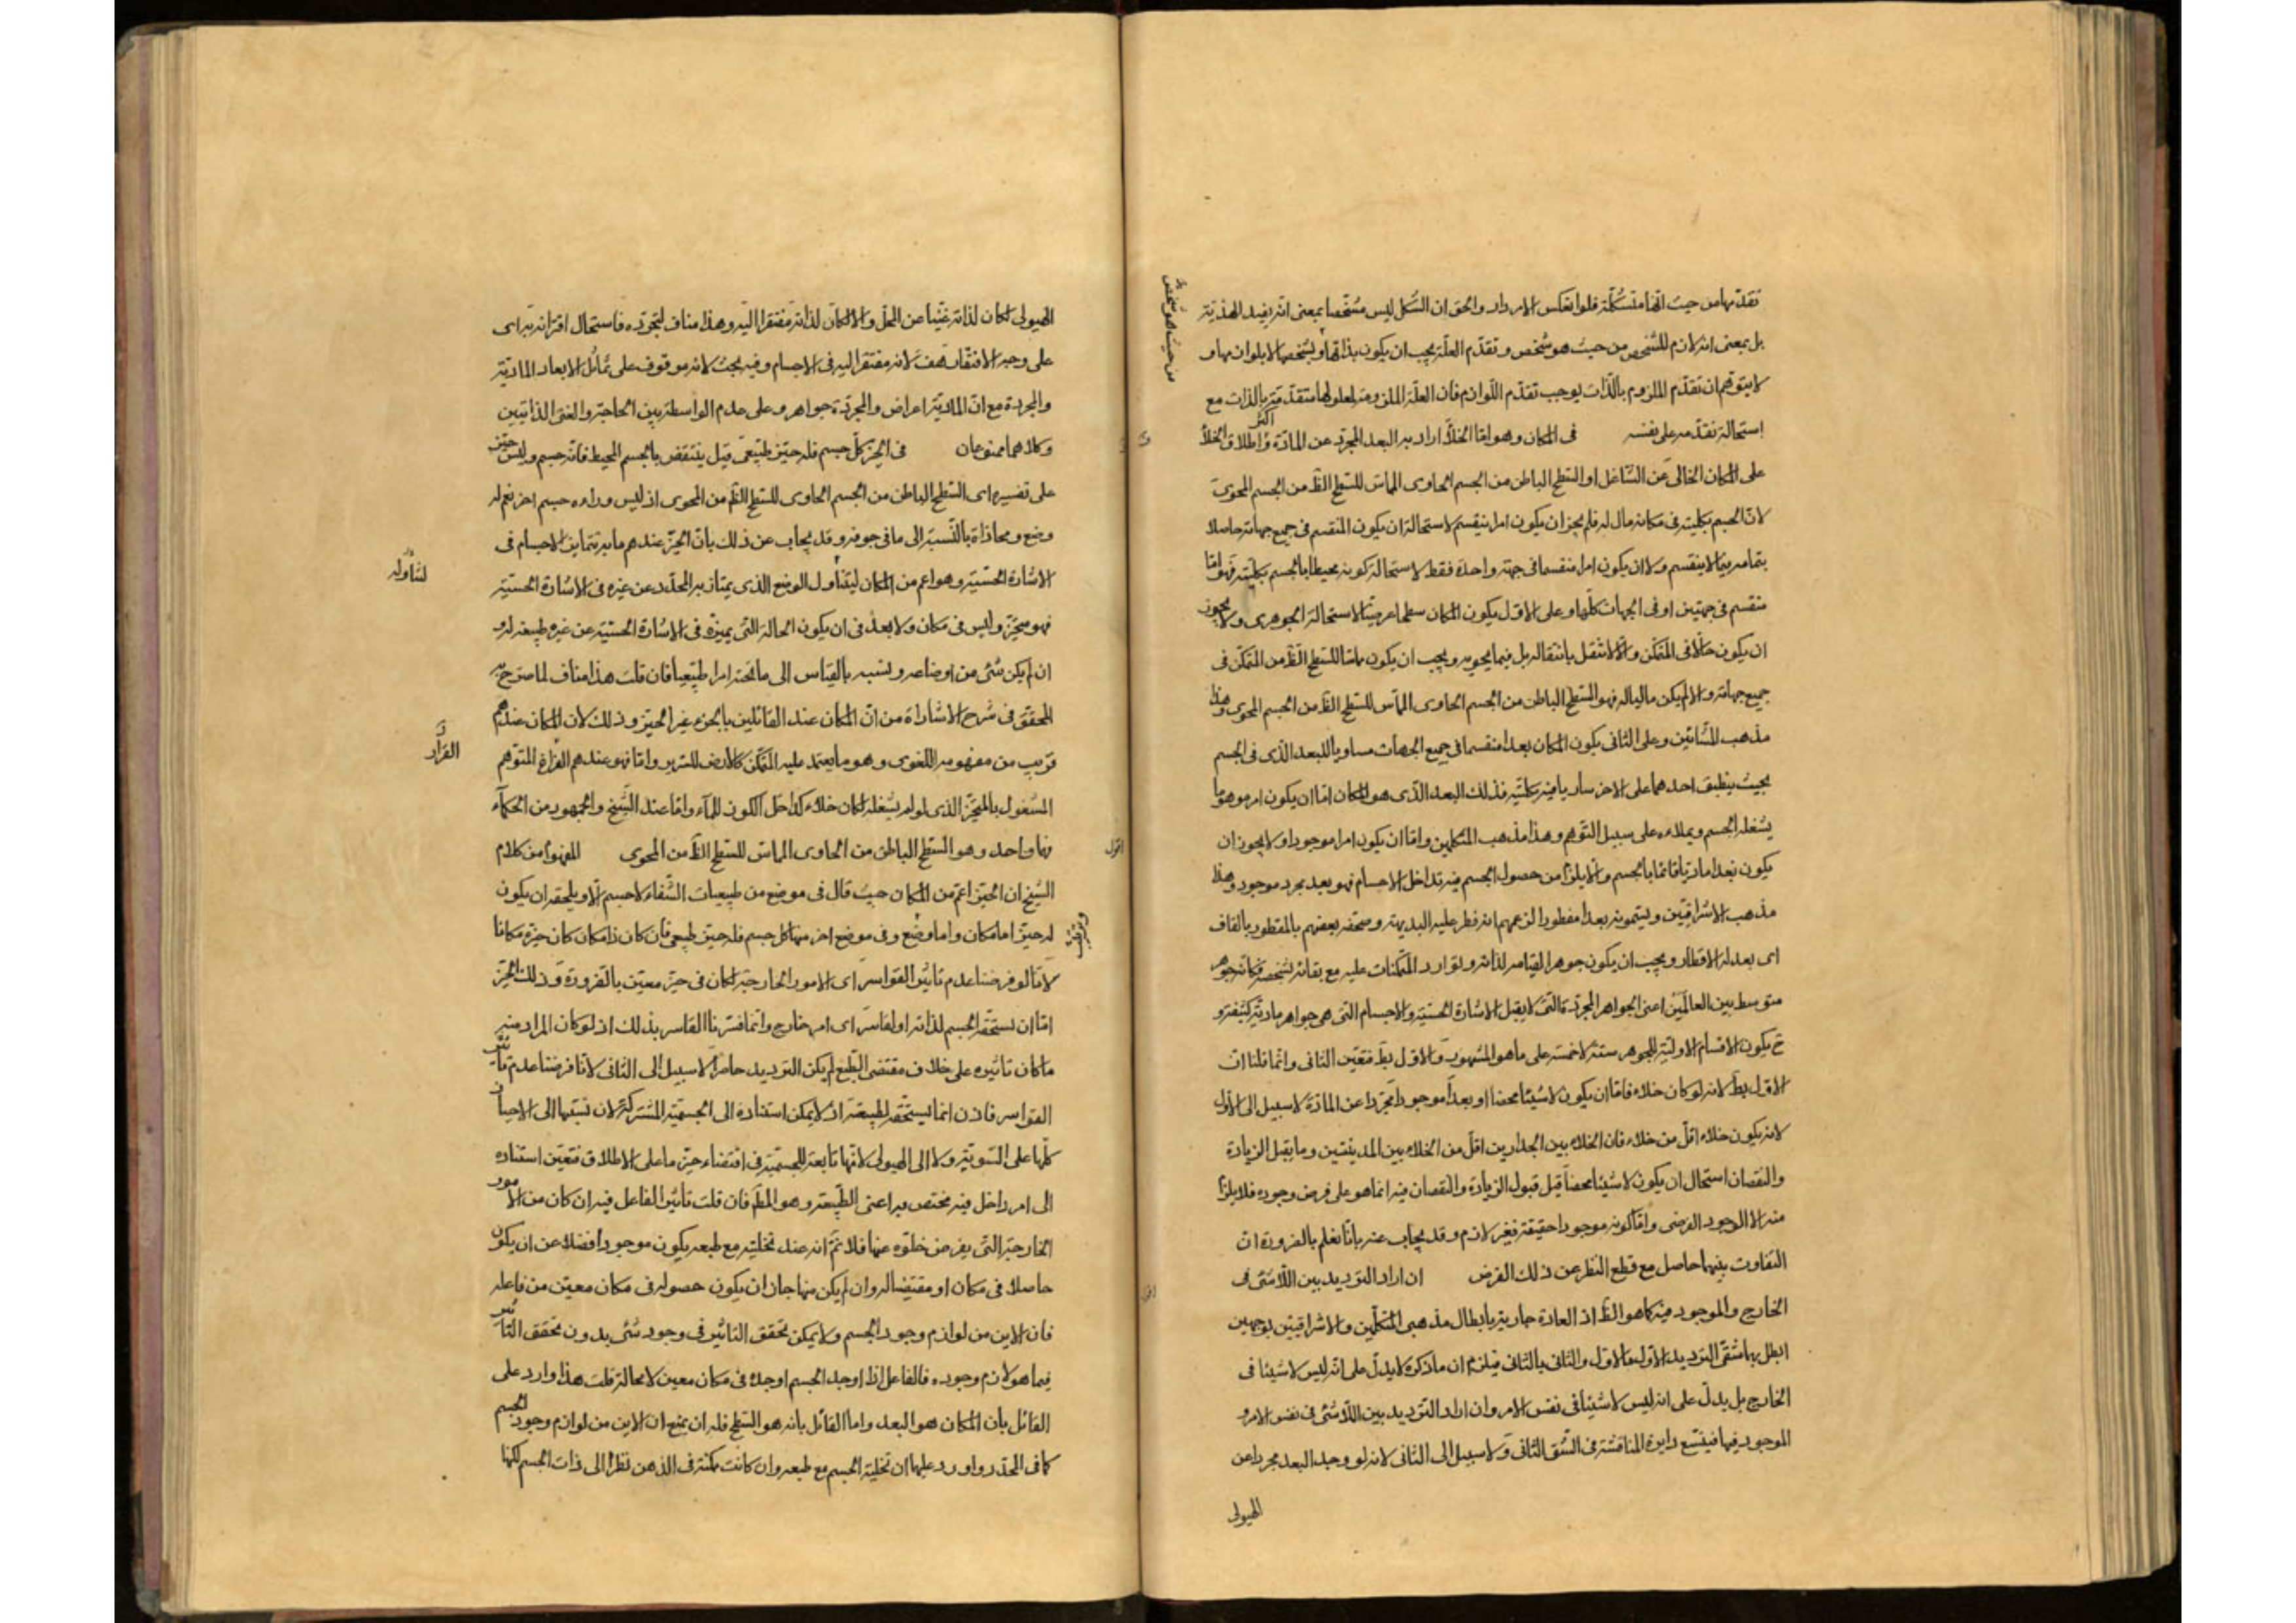 تقدّمها من حيث انّها متشكّلة فلو انعكس الامر دار والحق ان الشكل ليس مشخّصا بمعنى انّه يفيد الهذيّة
بل بمعنى انه لازم للشخص من حيث هو شخص وتقدّم العلّة يجب ان يكون بذاتها وبشخصها لا بلوازمها و
من حيث هو شخص
لا يتوهّم ان تقدّم الملزوم بالذّات يوجب تقدّم اللّوازم فان العلّة الملزومة لمعلولها متقدّمة بالذات مع
استحالة تقدّمه على نفسه في المكان وهو امّا الخلأ اراد به البعد المجرّد عن المادّة واطلاق الخلأ
اكثر
على المكان الخالى عن الشّاغل او السّطح الباطن من الجسم الحاوى المماسّ للسّطح الظّ من الجسم المحوىّ
لانّ الجسم بكليته في مكانه مال له فلم يجز ان يكون امرا لا ينقسم لاستحالة ان يكون المنقسم في جميع جهاته حاصلا
بتمامه فيما لا ينقسم ولا ان يكون امرا منقسما في جهة واحدة فقط لاستحالة كونه محيطا بالجسم بكليته فهو امّا
منقسم في جهتين او في الجهات كلّها وعلى الاوّل يكون المكان سطحا عرضيّا لاستحالة الجوهرى ولا يجوز
ان يكون حالّا في المتمكّن والّا لانتقل بانتقاله بل فيما يحويه ويجب ان يكون مماسّا للسّطح الظّ من المتمكّن في
جميع جهاته والا لم يكن ماليا له فهو السّطح الباطن من الجسم الحاوى المماسّ للسّطح الظّ من الجسم المحوى وهذا
مذهب المشّائين وعلى الثانى يكون المكان بعدا منقسما في جميع الجهات مساويا للبعد الّذى في الجسم
بحيث ينطبق احدهما على الاخر ساريا فيه بكليّته فذلك البعد الّذى هو المكان امّا ان يكون امرا موهوما
يشغله الجسم ويملاءه على سبيل التّوهم وهذا مذهب المتكلّمين وامّا ان يكون امرا موجودا ولا يجوز ان
يكون بعدا ماديّا قائما بالجسم والّا يلزم من حصول الجسم فيه تداخل الاجسام فهو بعد مجرد موجود وهذا
مذهب الاشراقيّين ويسمّونه بعدا مفطورا لزعمهم انه فطر عليه البديهة وصحّفه بعضهم بالمقطور بالقاف
اى بعد له الاقطار ويجب ان يكون جوهرا لقيامه لذاته وتوارد المتمكّنات عليه مع بقائه بشخصه فكانّه جوهر
متوسط بين العالمين اعنى الجواهر المجرّدة الّتى لا يقبل الاشارة الحسّيّة والاجسام التى هى جواهر ماديّة كثيفة و
ح يكون الاقسام الاوليّة للجوهر ستّة لا خمسة على ما هو المشهور والاوّل بط فتعيّن الثانى وانّما قلنا انّ
الاوّل بط لانه لو كان خلاء فامّا ان يكون لا شيئا محضا او بعدا موجودا مجرّدا عن المادّة لا سبيل الى الاوّل
لانه يكون خلاء اقلّ من خلاء فان الخلاء بين الجدارين اقلّ من الخلاء بين المدينتين وما يقبل الزيادة
والنقصان استحال ان يكون لا شيئا محضا قيل قبول الزيادة والنقصان فيه انّما هو على فرض وجوده فلا يلزم
منه الا الوجود الفرضى وامّا كونه موجودا حقيقة فغير لازم وقد يجاب عنه بانّا نعلم بالضرورة انّ
التفاوت بينهما حاصل مع قطع النّظر عن ذلك الفرض ان اراد الترديد بين اللّاشئ في
اقول
الخارج والموجود فيه كما هو الظّ اذ العادة جارية بابطال مذهبى المتكلّمين والاشراقيّين بوجهين
ابطل بهما شقّى الترديد الاوّل بالاوّل والثانى بالثانى فيلزم ان ما ذكره لا يدلّ على انّه ليس لا شيئا في
الخارج بل يدلّ على انه ليس لا شيئا في نفس الامر وان اراد الترديد بين اللّاشئ في نفس الامر و
الموجود فيها فيتّسع دايرة المناقشة في الشّق الثانى ولا سبيل الى الثانى لانه لو وجد البعد مجردا عن
الهيولى
الهيولى لكان لذاته غنيّا عن المحلّ والا لكان لذاته مفتقرا اليه وهذا مناف لتجرّده فاستحال اقترانه به اى
على وجه الافتقار هف لانه مفتقر اليه في الاجسام وفيه بحث لانه موقوف على تماثل الابعاد الماديّة
والمجردة مع انّ الماديّة اعراض والمجرّدة جواهر وعلى عدم الواسطة بين الحاجة والغنى الذاتيّين
وكلاهما ممنوعان في الحيّز كلّ جسم فله حيّز طبيعىّ قيل ينتقض بالجسم المحيط فانّه جسم وليس حيّز
على تفسيره اى السّطح الباطن من الجسم الحاوى للسّطح الظّ من المحوى اذ ليس وراءه جسم اخر نعم له
وضع ومحاذاة بالنّسبة الى ما في جوفه وقد يجاب عن ذلك بانّ الحيّز عندهم ما به يتمايز الاجسام في
الاشارة الحسّيّة وهو اعم من المكان ليتناول الوضع الذى يمتاز به المحدّد عن غيره في الاشارة الحسّيّة
لتناوله
فهو متحيّز وليس في مكان ولا بعد في ان يكون الحالة الّتى يميّزه في الاشارة الحسّيّة عن غيره طبيعة له و
ان لم يكن شئ من اوضاعه ونسبه بالقياس الى ما تحته امرا طبيعيا فان قلت هذا مناف لما صرّح به
المحقّق في شرح الاشارات من انّ المكان عند القائلين بالجزء غير الحيّز وذلك لان المكان عندهم
قريب من مفهومه اللغوى وهو ما يعتمد عليه المتمكّن كالارض للسّرير وامّا فهو عندهم الفراغ المتوهّم
الفراد
المشغول بالمتحيّز الذى لو لم يشغله لكان خلاء كداخل الكوز للماء وامّا عند الشّيخ والجمهور من الحكماء
فهما واحد وهو السّطح الباطن من الحاوى المماسّ للسّطح الظّ من المحوى المفهوم من كلام
اقول
الشّيخ ان الحيّز اعمّ من المكان حيث قال في موضع من طبيعيات الشّفاء لا جسم الّا ويلحقه ان يكون
له حيّز اما مكان واما وضع وفي موضع اخر منها كل جسم فله حيّز طبيعى فان كان ذا مكان كان حيّزه مكانا
لانّا لو فرضنا عدم تاثير القواسر اى الامور الخارجيّة لكان في حيّز معيّن بالضرورة وذلك الحيّز
امّا ان يستحقّه الجسم لذاته او لقاسر اى امر خارج وانّما فسّرنا القاسر بذلك اذ لو كان المراد منه
ما كان تاثيره على خلاف مقتضى الطّبع لم يكن الترديد حاصرا لا سبيل الى الثانى لانّا فرضنا عدم تاثير
القواسر فاذن انما يستحقّه لطبيعته اذ لا يمكن استناده الى الجسميّة المشتركة لان نسبتها الى الاحياز
كلّها على السّويّة ولا الى الهيولى لانّها تابعة للجسميّة في اقتضاء حيّز ما على الاطلاق فتعيّن استناده
الى امر داخل فيه مختص به اعنى الطّبيعة وهو المط فان قلت تاثير الفاعل فيه ان كان من الامور
الخارجيّة الّتى يفرض خلوّه عنها فلا نمّ انه عند تخليته مع طبعه يكون موجودا فضلا عن ان يكون
حاصلا في مكان او مقتضيا له وان لم يكن منها جاز ان يكون حصوله في مكان معيّن من فاعله
فان الاين من لوازم وجود الجسم ولا يمكن تحقق التاثير في وجود شئ بدون تحقق التاثير
فيما هو لازم وجوده فالفاعل اذا اوجد الجسم اوجده في مكان معين لا محالة قلت هذا وارد على
القائل بأن المكان هو البعد واما القائل بانه هو السّطح فله ان يمنع ان الاين من لوازم وجود الجسم
كما في المحدّد واورد عليهما ان تخلية الجسم مع طبعه وان كانت ممكنة في الذهن نظرا الى ذات الجسم لكنها